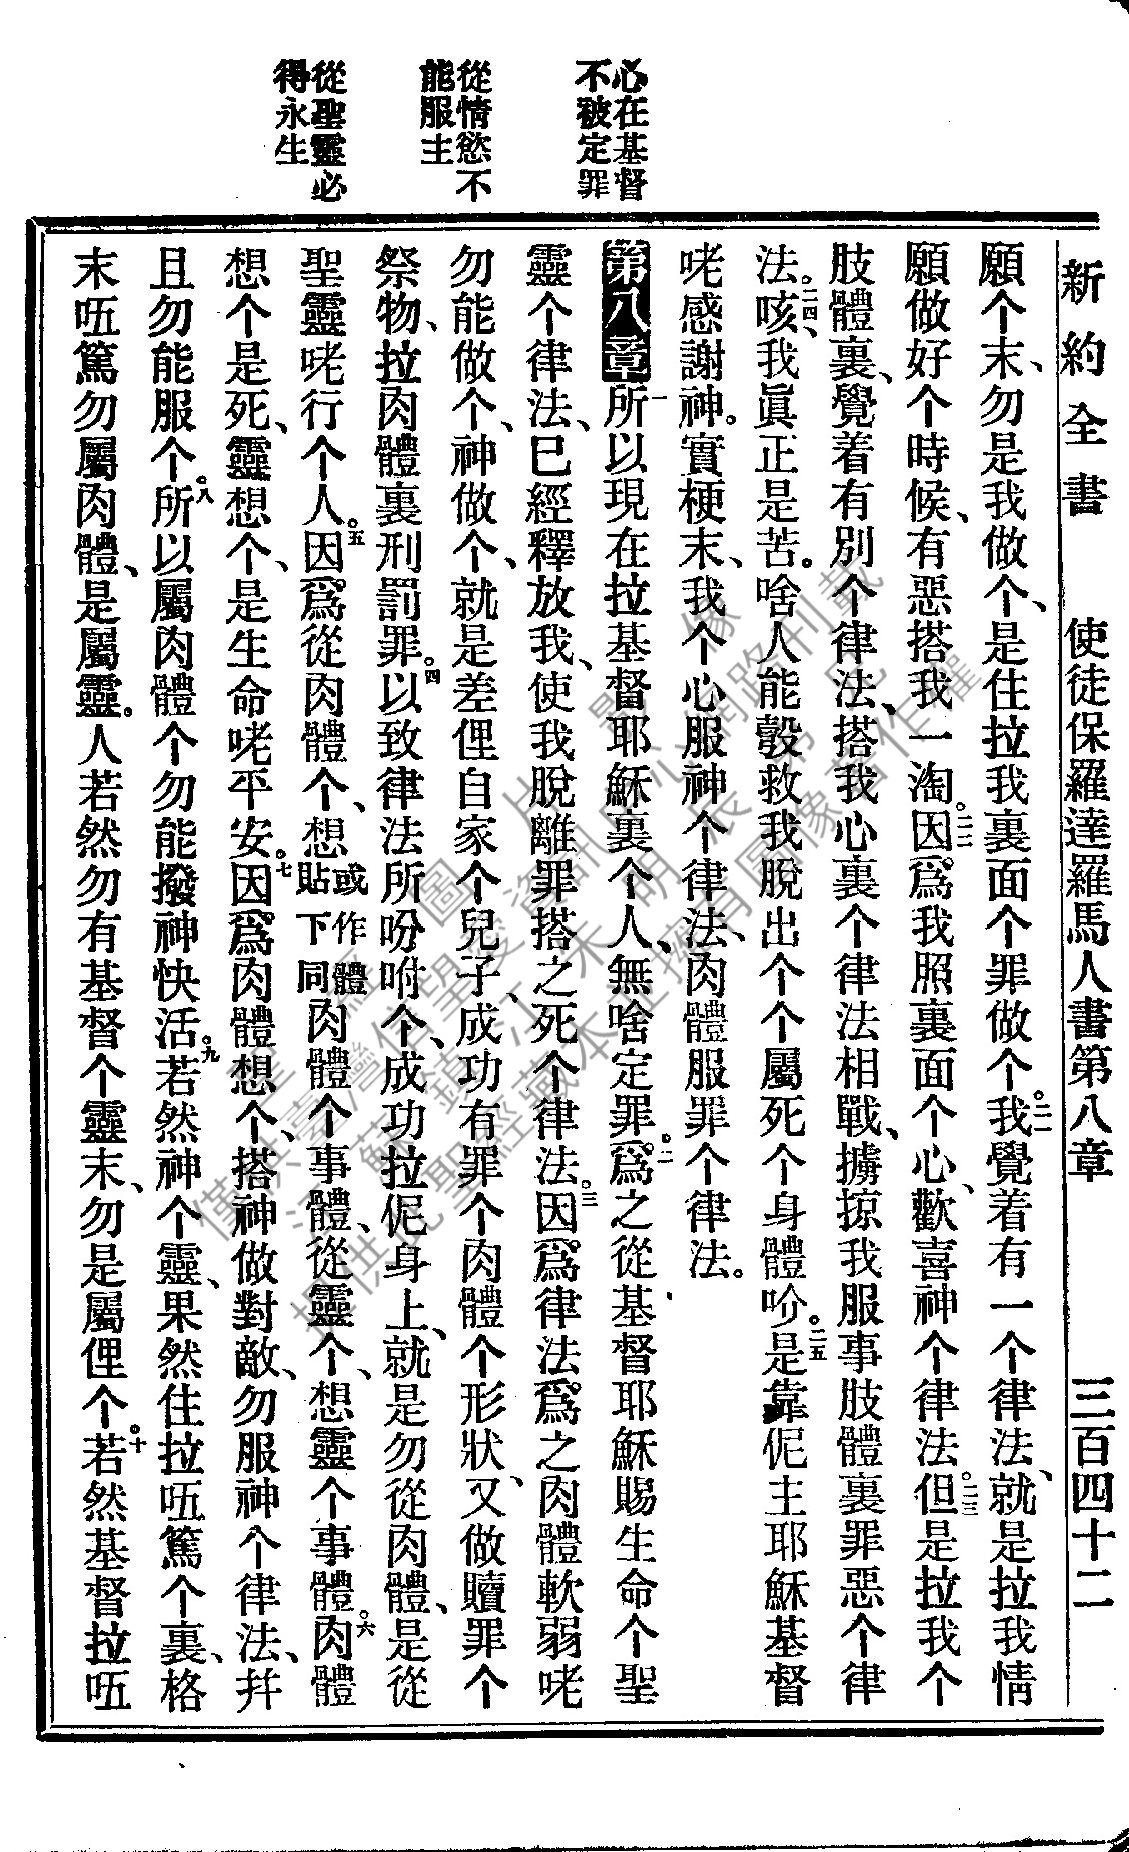 新約全書　使徒保羅達羅馬人書第八章　三百四十二
心在基督
不被定罪
從情慾不
能服主
從聖靈必
得永生
願个末、勿是我做个、是住拉我裏面个罪做个。二一我覺着有一个律法、就是拉我情
願做好个時候、有惡搭我一淘。二二因爲我照裏面个心、歡喜神个律法。二三但是拉我个
肢體裏、覺着有別个律法、搭我心裏个律法相戰、擄掠我服事肢體裏罪惡个律
法。二四咳、我眞正是苦。啥人能彀救我脫出个个屬死个身體吤。二五是靠伲主耶穌基督
咾感謝神。實梗末、我个心服神个律法、肉體服罪个律法。
第八章一所以現在拉基督耶穌裏个人、無啥定罪。二爲之從基督耶穌賜生命个聖
靈个律法、已經釋放我、使我脫離罪搭之死个律法。三因爲律法爲之肉體軟弱咾
勿能做个、神做个、就是差俚自家个兒子、成功有罪个肉體个形狀、又做贖罪个
祭物、拉肉體裏刑罰罪。四以致律法所吩咐个、成功拉伲身上、就是勿從肉體、是從
聖靈咾行个人。五因爲從肉體个、想或作體貼下同肉體个事體、從靈个、想靈个事體。六肉體
想个是死、靈想个、是生命咾平安。七因爲肉體想个、搭神做對敵、勿服神个律法、幷
且勿能服个。八所以屬肉體个勿能撥神快活。九若然神个靈、果然住拉㕶篤个裏、格
末㕶篤勿屬肉體、是屬靈。人若然勿有基督个靈末、勿是屬俚个。十若然基督拉㕶